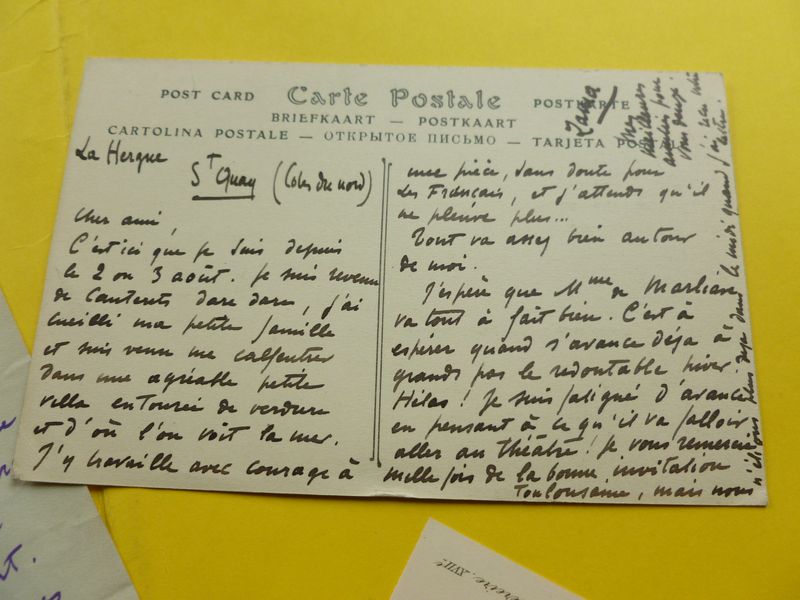 POST CARD Carte Postale POSTKARTE
BRIEFKAART — POSTKAART
CARTOLINA POSTALE — ОТКРЫТОЕ ПИСЬМО — TARJETA POSTAL
La Hergue
St Quay (Côtes du nord)
Cher ami,
C'est ici que je suis depuis
le 2 ou 3 août. je suis revenu
de Cauterets dare dare, j'ai
cueilli ma petite famille
et suis venu me calfeutrer
dans une agréable petite
villa entourée de verdure
et d'où l'on voit la mer.
J'y travaille avec courage à
une pièce, sans doute pour
les Français, et j'attends qu'il
ne pleuve plus...
Tout va assez bien autour
de moi.
J'espère que Mme de Marliave
va tout à fait bien. C'est à
espérer quand s'avance déjà à
grands pas le redoutable hiver.
Hélas! je suis fatigué d'avance
en pensant à ce qu'il va falloir
aller au théâtre! je vous remercie
mille fois de la bonne invitation
Toulousaine, mais nous
n'étions plus déjà dans le midi quand j'ai
vous deux
meilleures
XVIIe